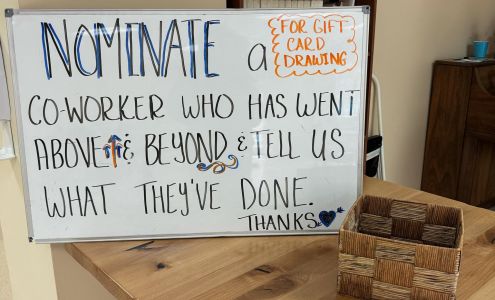 NOMINATE a
FOR GIFT
CARD
DRAWING
CO-WORKER WHO HAS WENT
ABOVE & BEYOND & TELL US
WHAT THEY'VE DONE.
THANKS